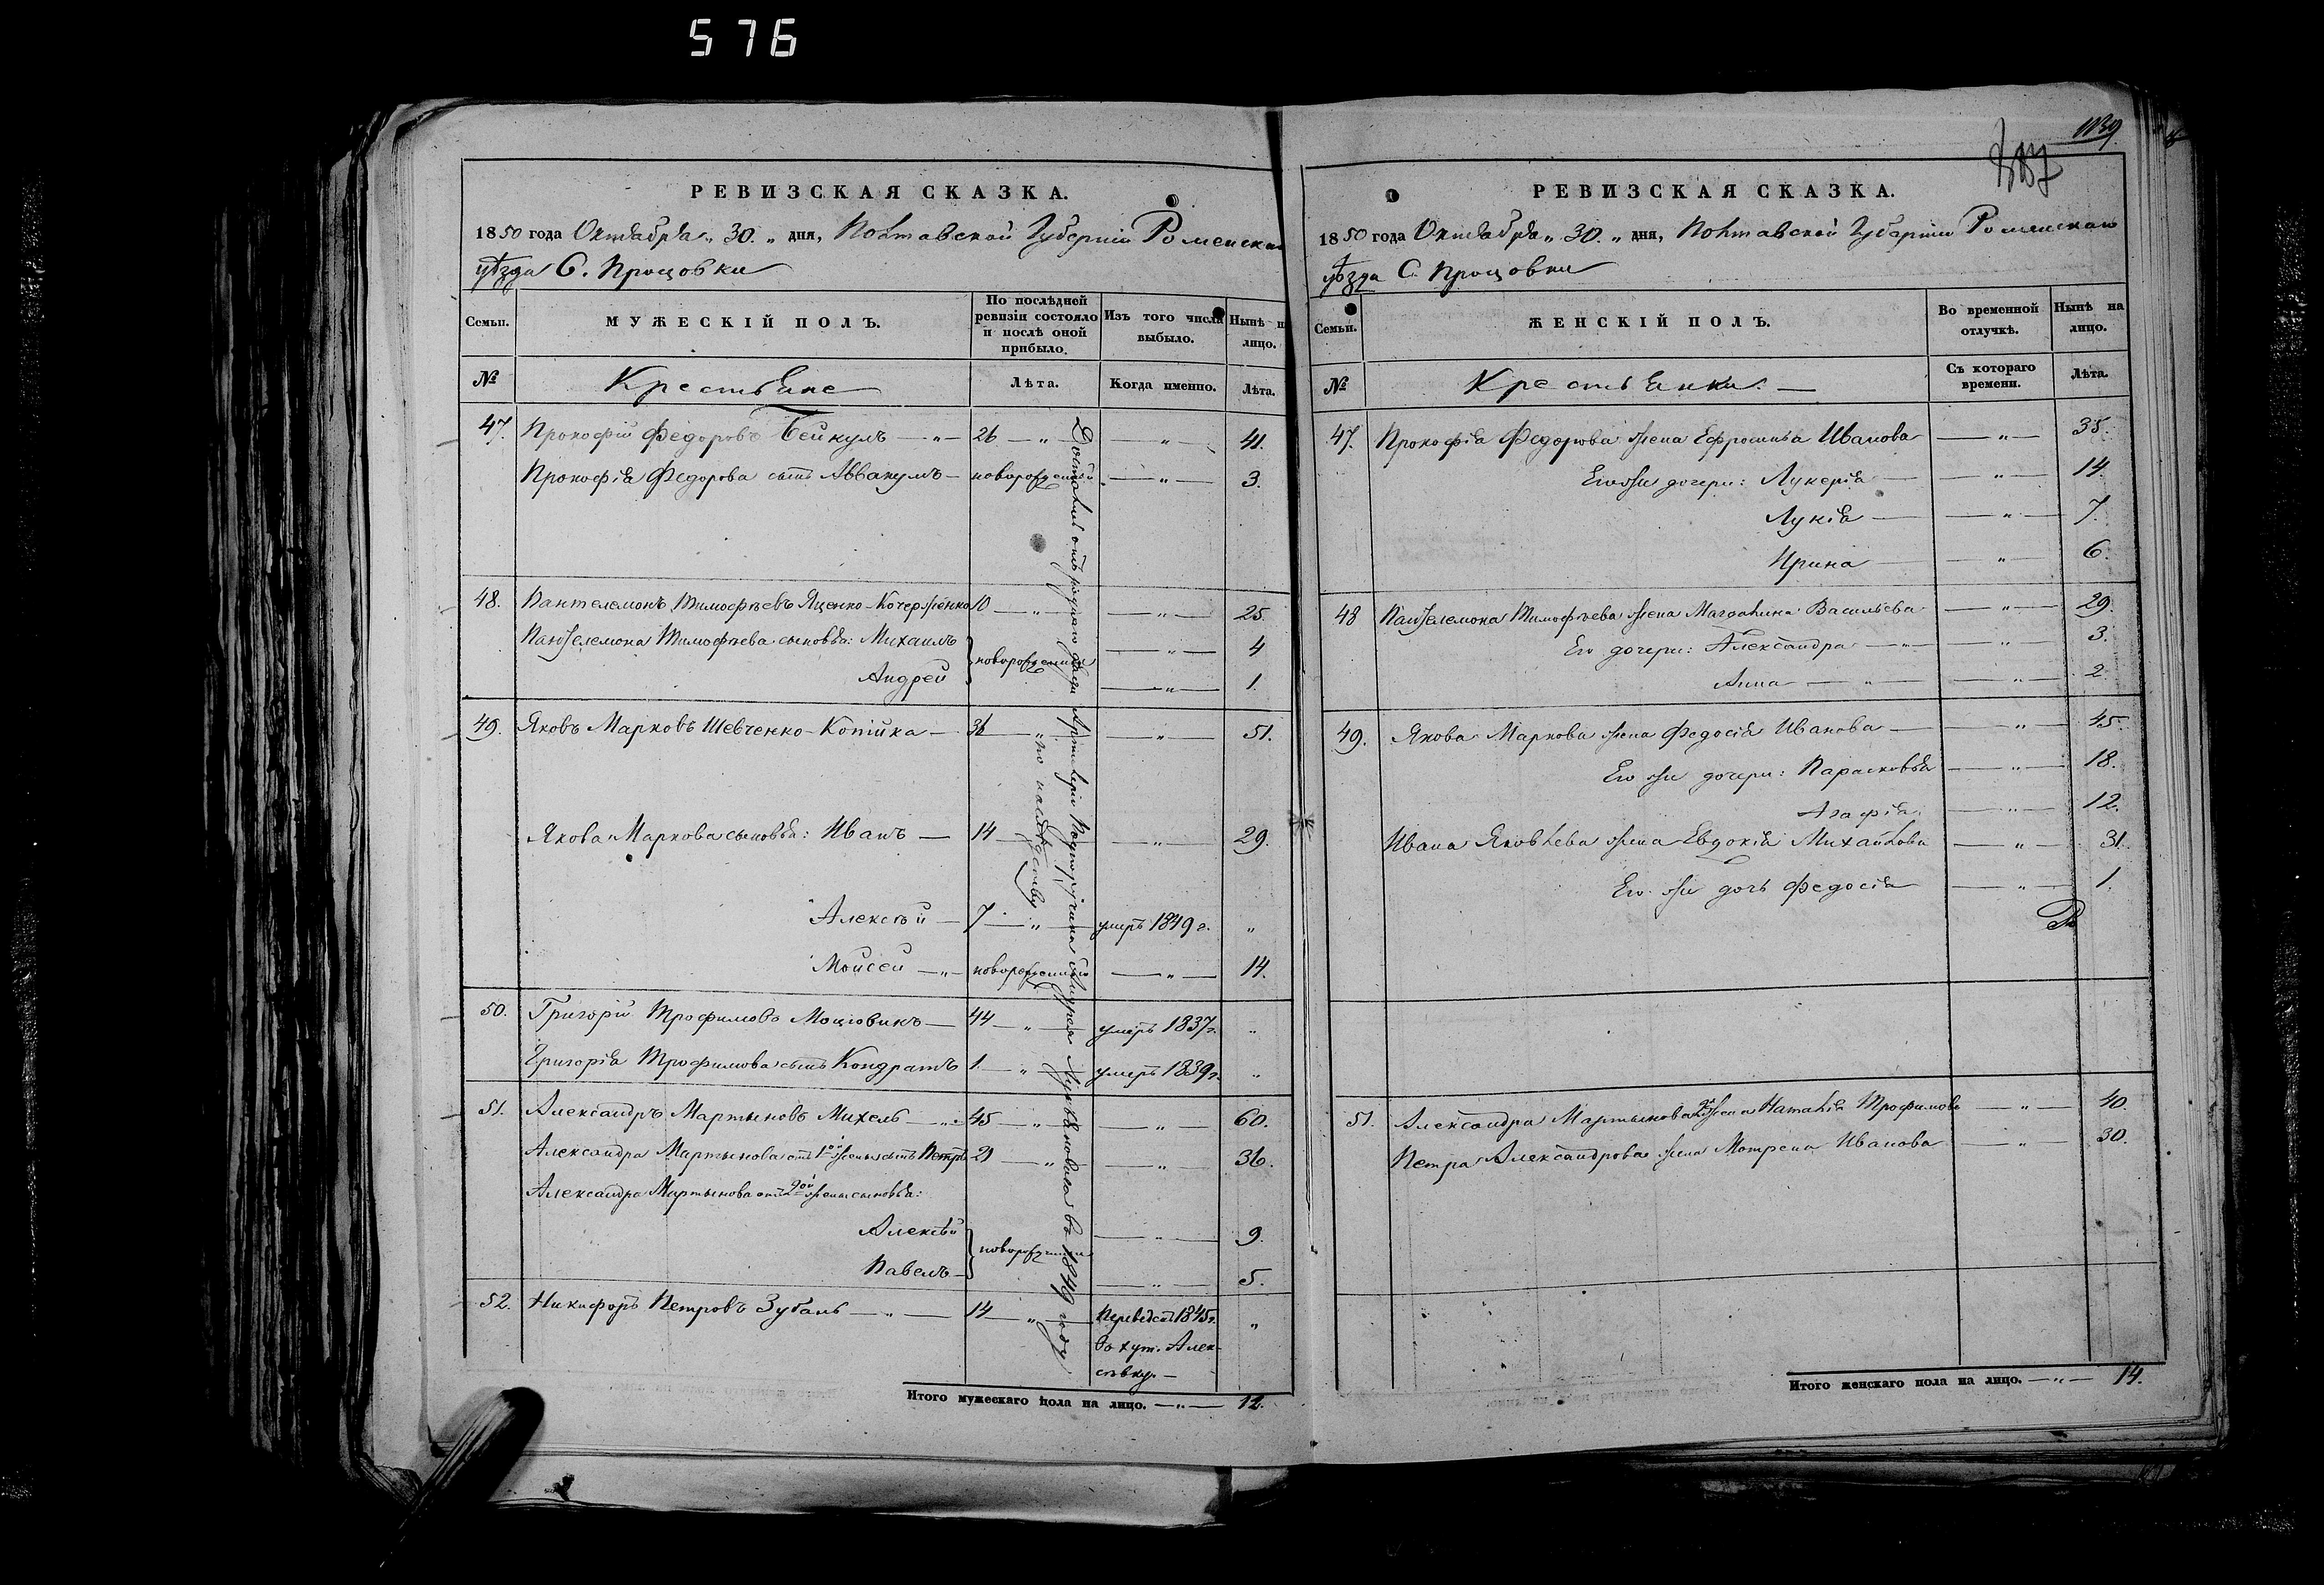 576
РЕВИЗСКАЯ СКАЗКА.
1850 года Октября „ 30. „ дня, Полтавской Губерніи Роменскаго
уѣзда С. Процовки
Семьи.
МУЖЕСКІЙ ПОЛЪ.
По послѣдней ревизіи состояло и послѣ оной прибыло.
Изъ того числа выбыло.
Нынѣ на лицо.
№
Крестьяне
Лѣта.
Когда именно.
Лѣта.
47. Прокофій Федоровъ Бейкулъ — „ — 26 — „ — — „ — 41.
Прокофія Федорова сынъ Аввакумъ — новорожденный — „ — 3.
48. Пантелемонъ Тимофѣевъ Яценко-Кочерженко 10 — „ — — „ — 25.
Пантелемона Тимофѣева сыновья: Михаилъ — „ — 4
новорожденные
Андрей — „ — 1.
49. Яковъ Марковъ Шевченко-Копійка — 36 — „ — — „ — 51.
Якова Маркова сыновья: Иванъ — 14 — „ — — „ — 29.
Алексѣй — 7 — „ — умеръ 1849 г. „
Мойсей — „ — новорожденный — „ — 14.
50. Григорій Трофимовъ Моцювикъ — 44 — „ — умеръ 1837 г. „
Григорія Трофимова сынъ Кондратъ 1. — „ — умеръ 1839 г. „
51. Александръ Мартыновъ Михель — „ — 45 — „ — — „ — 60.
Александра Мартынова отъ 1ой жены сынъ Петръ 21 — „ — — „ — 36.
Александра Мартынова отъ 2ой жены сыновья:
Алексѣй — „ — 9.
новорожденные
Павелъ — — „ — 5.
52. Никифоръ Петровъ Зубань — „ — 14 — „ — Переведенъ 1845 г. „
въ хут. Алек-
сѣвку. —
Достались отъ роднаго дяди Артилеріи Подпоручика Андрея Лукьяновича въ 1849 году
по наслѣдству
Итого мужескаго пола на лицо. — „ — 12.
1139
РЕВИЗСКАЯ СКАЗКА.
1850 года Октября „ 30. „ дня, Полтавской Губерніи Роменскаго
уѣзда С. Процовки
Семьи.
ЖЕНСКІЙ ПОЛЪ.
Во временной отлучкѣ.
Нынѣ на лицо.
№
Крестьянки. —
Съ котораго времени.
Лѣта.
47. Прокофія Федорова жена Ефросинья Иванова — „ — 35.
Его же дочери: Лукерія — „ — 14.
Лукія — — „ — 7.
Ирина — „ — 6.
48 Пантелемона Тимофѣева жена Магдалина Васильева — „ — 29.
Его дочери: Александра — „ — — „ — 3.
Анна — „ — — „ — 2.
49. Якова Маркова жена Федосія Иванова — — „ — 45.
Его же дочери: Парасковья — „ — 18.
Агафія. — „ — 12.
Ивана Яковлева жена Евдокія Михайлова — „ — 31.
Его же дочь Федосія — „ — 1.
51. Александра Мартынова 2я жена Наталія Трофимова — „ — 40.
Петра Александрова жена Мотрена Иванова — „ — 30.
Итого женскаго пола на лицо. — „ — 14.